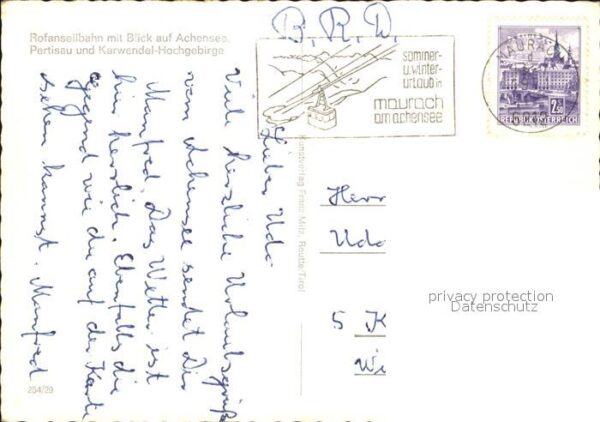 Rofanseilbahn mit Blick auf Achensee,
Pertisau und Karwendel-Hochgebirge
B.R.D.
sommer-
u.winter-
urlaub in
maurach
am achensee
MAURACH
2.50
REPUBLIK ÖSTERREICH
Lieber Udo
Viele herzliche Urlaubsgrüße
vom Achensee sendet Dir
Manfred. Das Wetter ist
hier herrlich. Ebenfalls die
Gegend wie du auf der Karte
sehen kannst. Manfred
Kunstverlag Franz Milz, Reutte/Tirol
Herr
Udo
5 K
Wi
privacy protection
Datenschutz
254/29